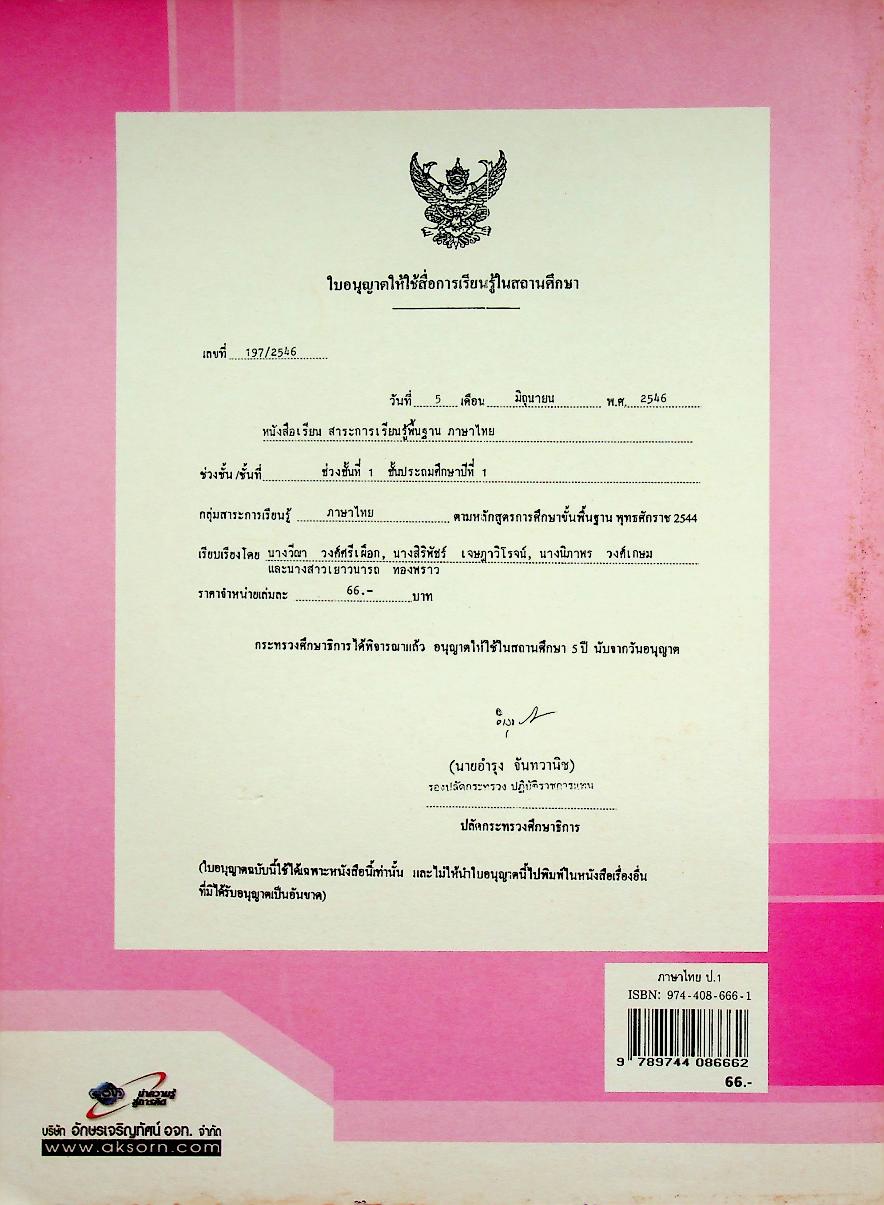 ใบอนุญาตให้ใช้สื่อการเรียนรู้ในสถานศึกษา
เลขที่ 197/2546
วันที่ 5 เดือน มิถุนายน พ.ศ. 2546
หนังสือเรียน สาระการเรียนรู้พื้นฐาน ภาษาไทย
ช่วงชั้น/ชั้นที่ ช่วงชั้นที่ 1 ชั้นประถมศึกษาปีที่ 1
กลุ่มสาระการเรียนรู้ ภาษาไทย ตามหลักสูตรการศึกษาขั้นพื้นฐาน พุทธศักราช 2544
เรียบเรียงโดย นางวีณา วงศ์ศรีเผือก, นางสิริพัชร์ เจษฎาวิโรจน์, นางนิภาพร วงศ์เกษม
และนางสาวเยาวนารถ ทองพราว
ราคาจำหน่ายเล่มละ 66.- บาท
กระทรวงศึกษาธิการได้พิจารณาแล้ว อนุญาตให้ใช้ในสถานศึกษา 5 ปี นับจากวันอนุญาต
(นายอำรุง จันทวานิช)
รองปลัดกระทรวง ปฏิบัติราชการแทน
ปลัดกระทรวงศึกษาธิการ
(ใบอนุญาตฉบับนี้ใช้ได้เฉพาะหนังสือนี้เท่านั้น และไม่ให้นำใบอนุญาตนี้ไปพิมพ์ในหนังสือเรื่องอื่น
ที่มิได้รับอนุญาตเป็นอันขาด)
ภาษาไทย ป.1
ISBN: 974-408-666-1
9 789744 086662
66.-
นำความรู้
สู่การคิด
บริษัท อักษรเจริญทัศน์ อจท. จำกัด
www.aksorn.com